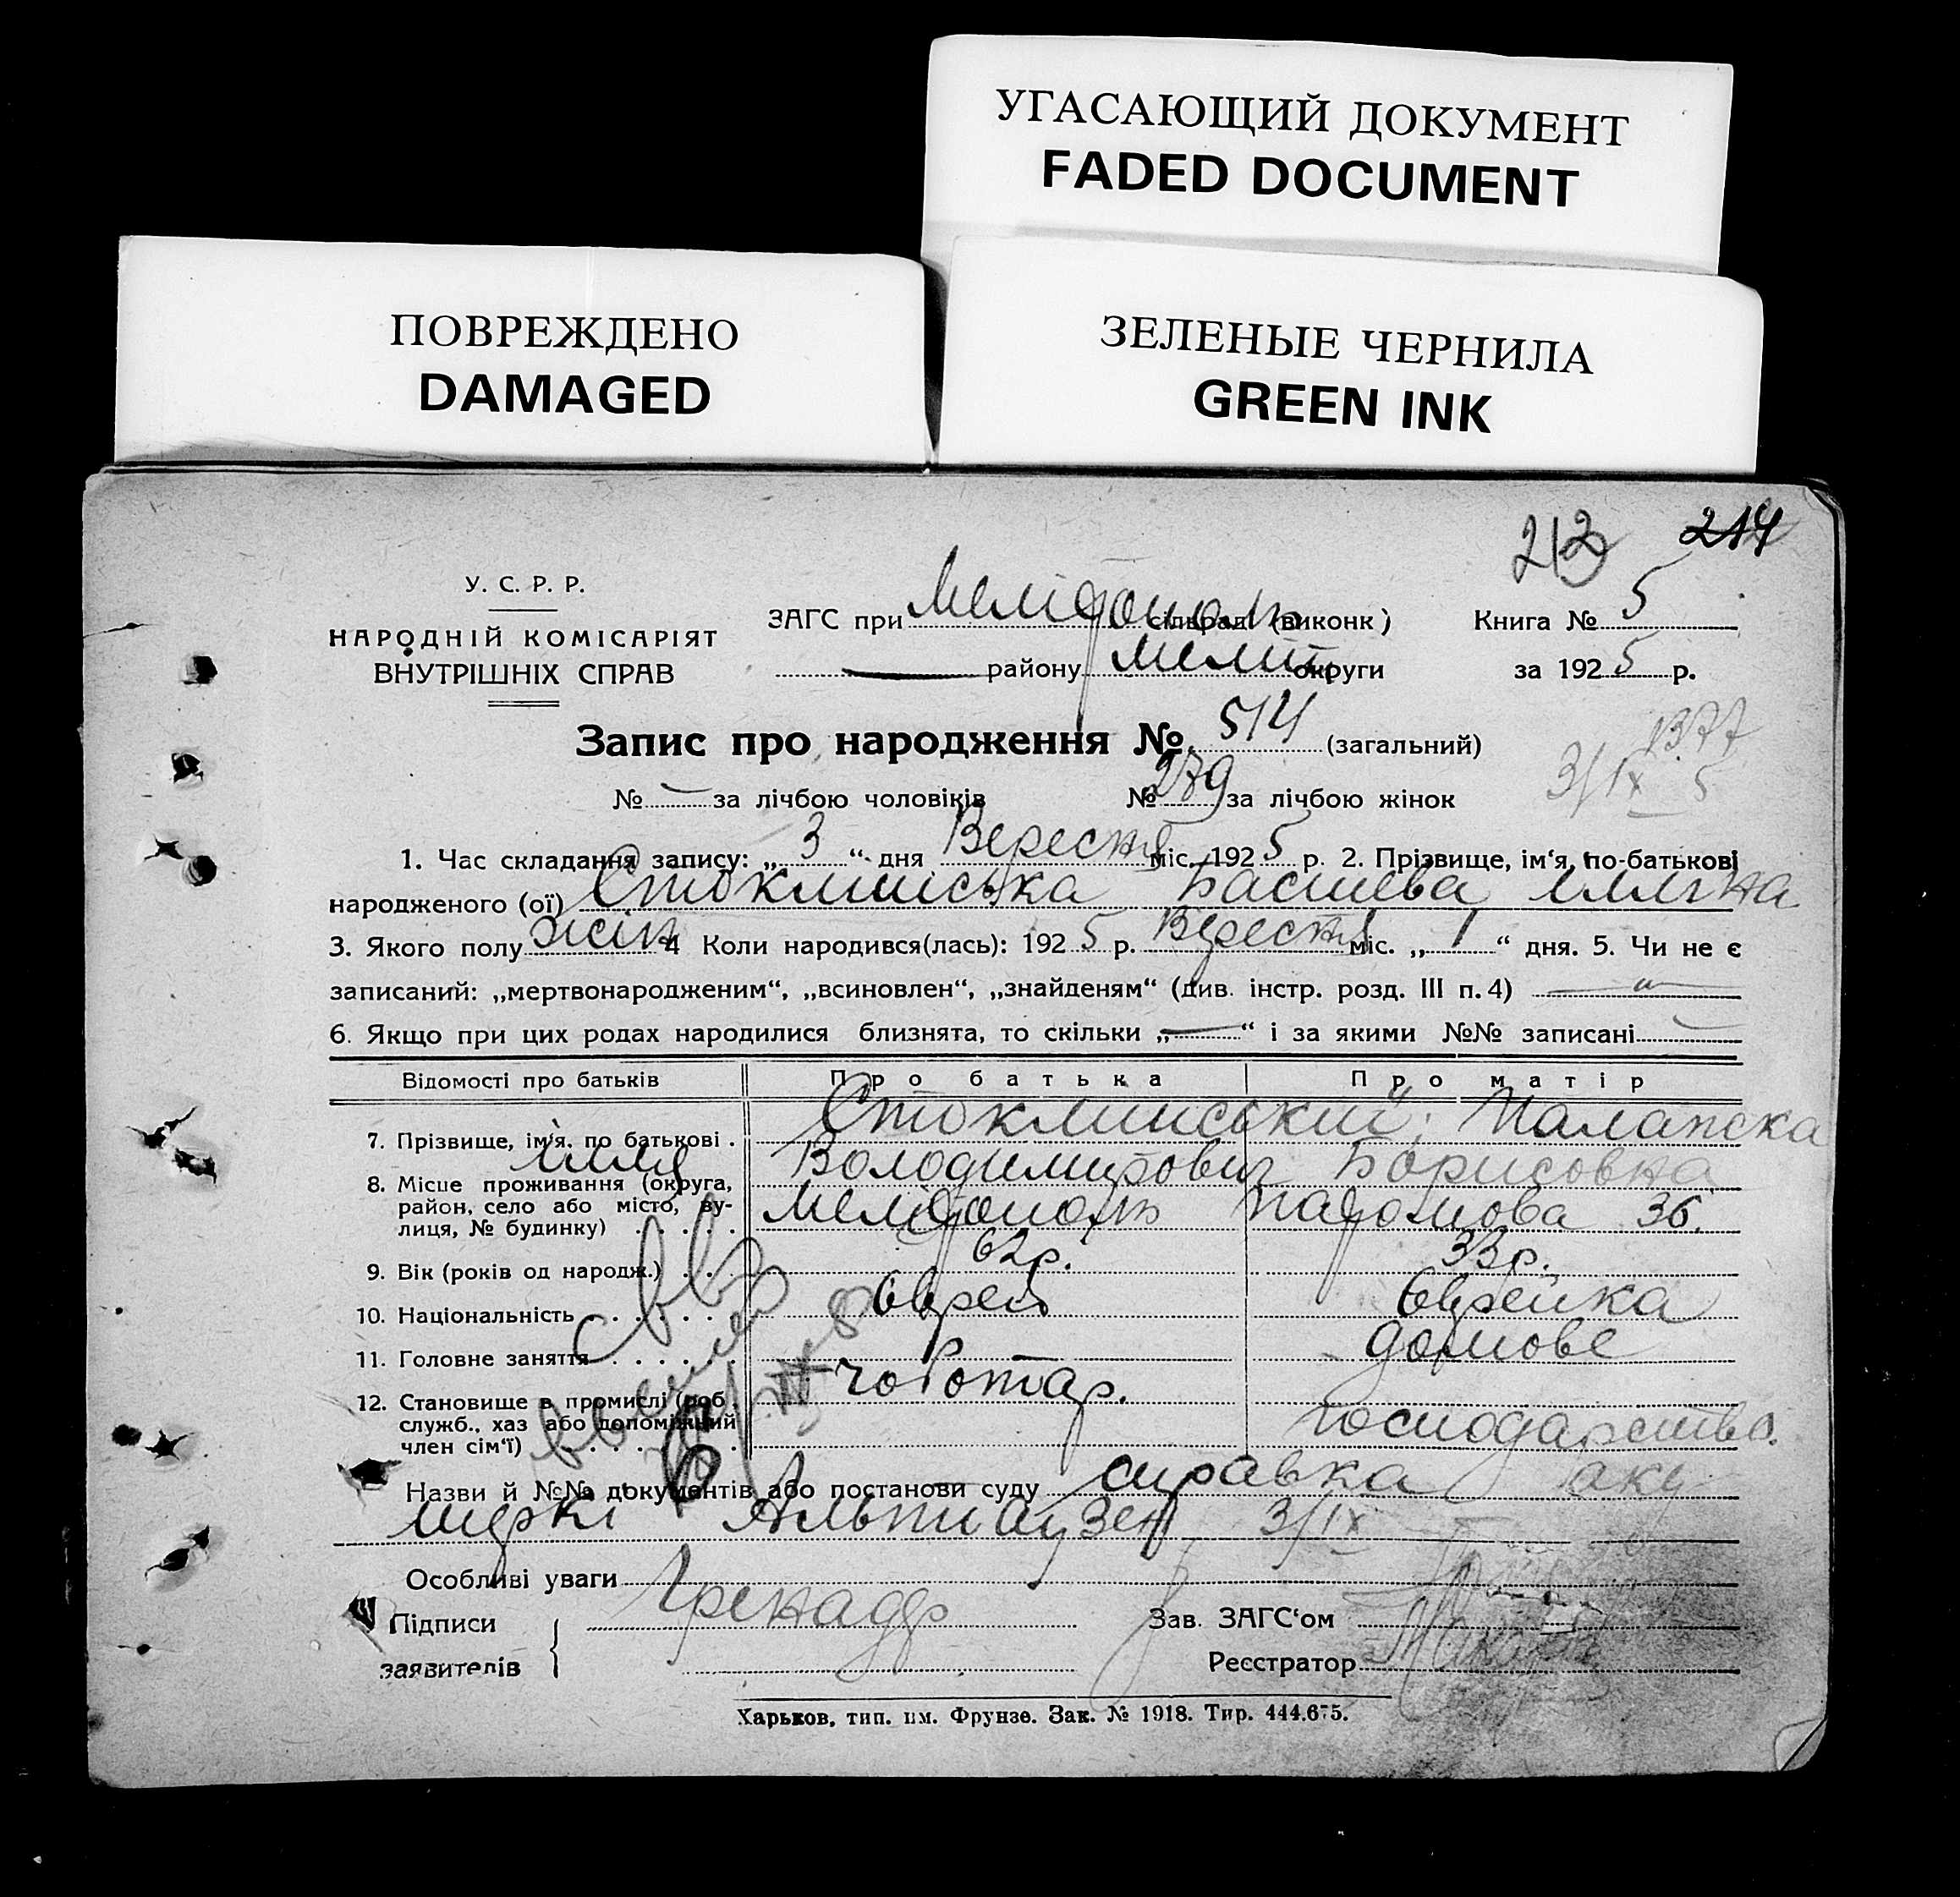 УГАСАЮЩИЙ ДОКУМЕНТ
FADED DOCUMENT
ПОВРЕЖДЕНО
DAMAGED
ЗЕЛЕНЫЕ ЧЕРНИЛА
GREEN INK
212 214
У. С. Р. Р.
НАРОДНІЙ КОМІСАРІЯТ
ВНУТРІШНІХ СПРАВ
ЗАГС при Мелітополь сільрад (виконк)
— району Меліт округи
Книга № 5
за 1925 р.
Запис про народження № 514 (загальний)
1377
№ — за лічбою чоловіків № 279 за лічбою жінок
3/IX 5
1. Час складання запису: „ 3 “ дня Вересня міс. 1925 р. 2. Прізвище, ім‘я, по-батькові
народженого (ої) Стоклинська Басшева Іллінa
3. Якого полу жін 4 Коли народився(лась): 1925 р. Вересня міс. „ 1 “ дня. 5. Чи не є
записаний: „мертвонародженим“, „всиновлен“, „знайденям“ (див. інстр. розд. III п. 4) —
6. Якщо при цих родах народилися близнята, то скільки „—“ і за якими №№ записані —
Відомості про батьків Про батька Про матір
7. Прізвище, ім‘я, по батькові . Стоклинський Палатска
Ілля Володимирович Борисовна
8. Місце проживання (округа, район, село або місто, вулиця, № будинку) Мелітополь 36.
9. Вік (років од народж.) . . . 62 р. 33 р.
10. Національність . . . . . . . Єврей Єврейка
11. Головне заняття . . . . . . домове
12. Становище в промислі (роб. служб., хаз або допоміжний член сім‘ї) чоботар. господарство.
Назви й №№ документів або постанови суду справка аку
шеркі Альтгаузен 3/IX
Особливі уваги
Підписи
заявителів
Зав. ЗАГС‘ом
Реєстратор
Харьков, тип. им. Фрунзе. Зак. № 1918. Тир. 444.675.